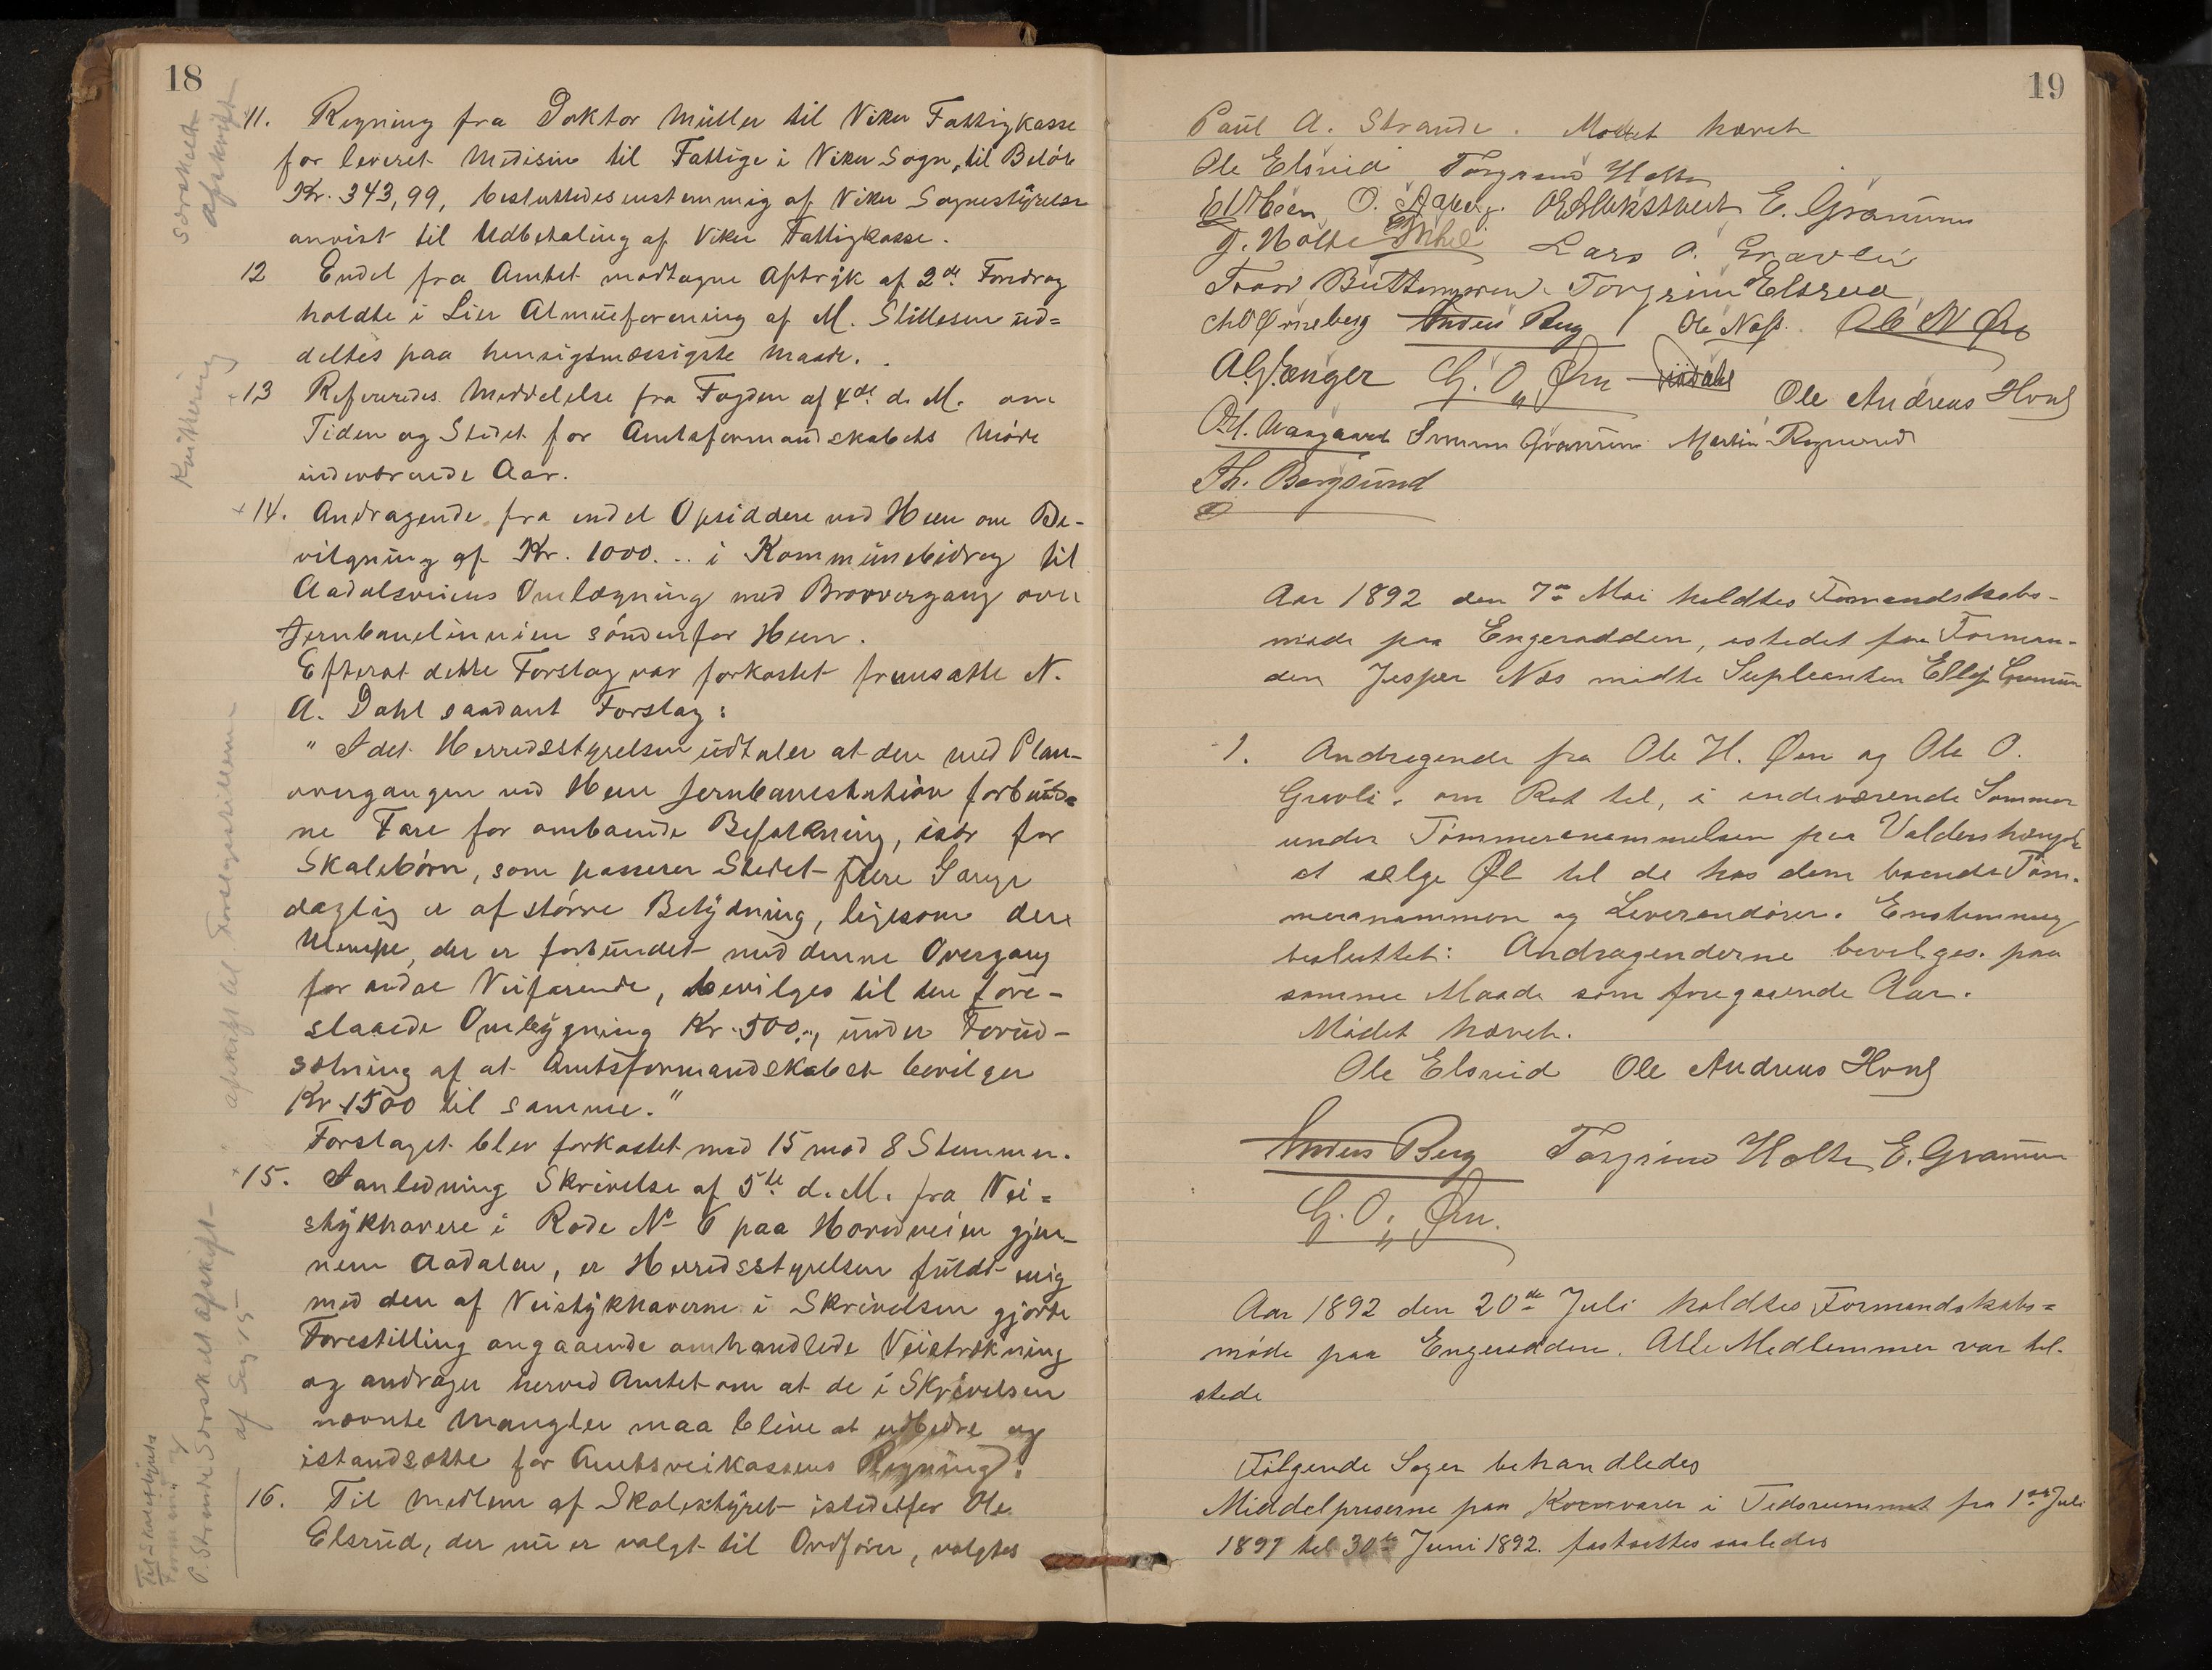 18
11. Regning fra Doktor Müller til Viker Fattigkasse
for leveret Medisin til Fattige i Viker Sogn, til Beløb
Kr. 343,99, besluttedes enstemmig af Viker Sognestyrelse
anvist til Udbetaling af Viker Fattigkasse.
12 Endel fra Amtet modtagne Aftryk af 2de Foredrag
holdte i Lier Almueforening af M. Stillesen ud=
deltes paa hensigtmæssigste Maade.
13 Refereredes Meddelelse fra Fogden af 4de d. M. om
Tiden og Stedet for Amtsformandskabets Møde
indeværende Aar.
14. Andragende fra endel Opsiddere ved Heen om Be-
vilgning af Kr. 1000... i Kommunebidrag til
Aadalsveiens Omlægning med Broovergang over
Jernbanelinnien søndenfor Heen.
Efterat dette Forslag var forkastet fremsatte N.
A. Dahl saadant Forslag:
" Idet Herredsstyrelsen udtaler at den med Plan-
overgangen ved Heen Jernbanestation forbund=
ne Fare for omboende Befolkning, især for
Skolebørn, som passerer Stedet flere Gange
daglig er af større Betydning, ligesom den
Ulempe, der er forbundet med denne Overgang
for andre Veifarende, bevilges til den fore-
slaaede Ombygning Kr. 500.., under Forud-
sætning af at Amtsformandskabet bevilger
Kr 1500 til samme."
Forslaget blev forkastet med 15 mod 8 Stemmer.
15. I anledning Skrivelse af 5te d. M. fra Vei=
stykhavere i Rode No 6 paa Hovedveien gjen-
nem Aadalen, er Herredsstyrelsen fuldt enig
med den af Veistykhaverne i Skrivelsen gjorte
Forestilling angaaende omhandlede Veistrækning
og andrager herved Amtet om at de i Skrivelsen
nævnte Mangler maa blive at udbedre og
istandsætte for Amtsveikassens Regning.
16. Til Medlem af Skolestyret istedetfor Ole
Elsrud, der nu er valgt til Ordfører, valgtes
særskilt
afskrift
Kvittering
afskrift til Forslagsstilleren
Særskilt afskrift
af Sag 15
Til Skolestyrets
Formand
P. Strande
19
Paul A. Strande. Mødet hævet
Ole Elsrud Torgrim Holte
O. Aaberg. E. Gramum
J. Holte Lars O. Gravli
Torgrim Elsrud
Anders Berg Ole Næss. Ole N Øen
G. O. Øen Ole Andreas Hval
Martin Ragnerud
Th. Bergsund
Aar 1892 den 7de Mai holdtes Formandskabs-
møde paa Engerodden, istedet for Forman-
den Jesper Næs mødte Supleanten Ellef Gramum
1. Andragende fra Ole H. Øen og Ole O.
Gravli. om Ret til, i indeværende Sommer
under Tømmerannammelsen paa Valdershængsle
at sælge Øl til de hos dem boende Tøm-
merannammere og Leverandører. Enstemmig
besluttet: Andragenderne bevilges. paa
samme Maade som foregaaende Aar.
Mødet hævet.
Ole Elsrud Ole Andreas Hval
Anders Berg Torgrim Holte E. Gramum
G. O. Øen.
Aar 1892 den 20de Juli holdtes Formandskabs=
møde paa Engerodden. Alle Medlemmer var til-
stede
Følgende Sager behandledes
Middelpriserne paa Kornvarer i Tidsrummet fra 1ste Juli
1891 til 30te Juni 1892. fastsattes saaledes